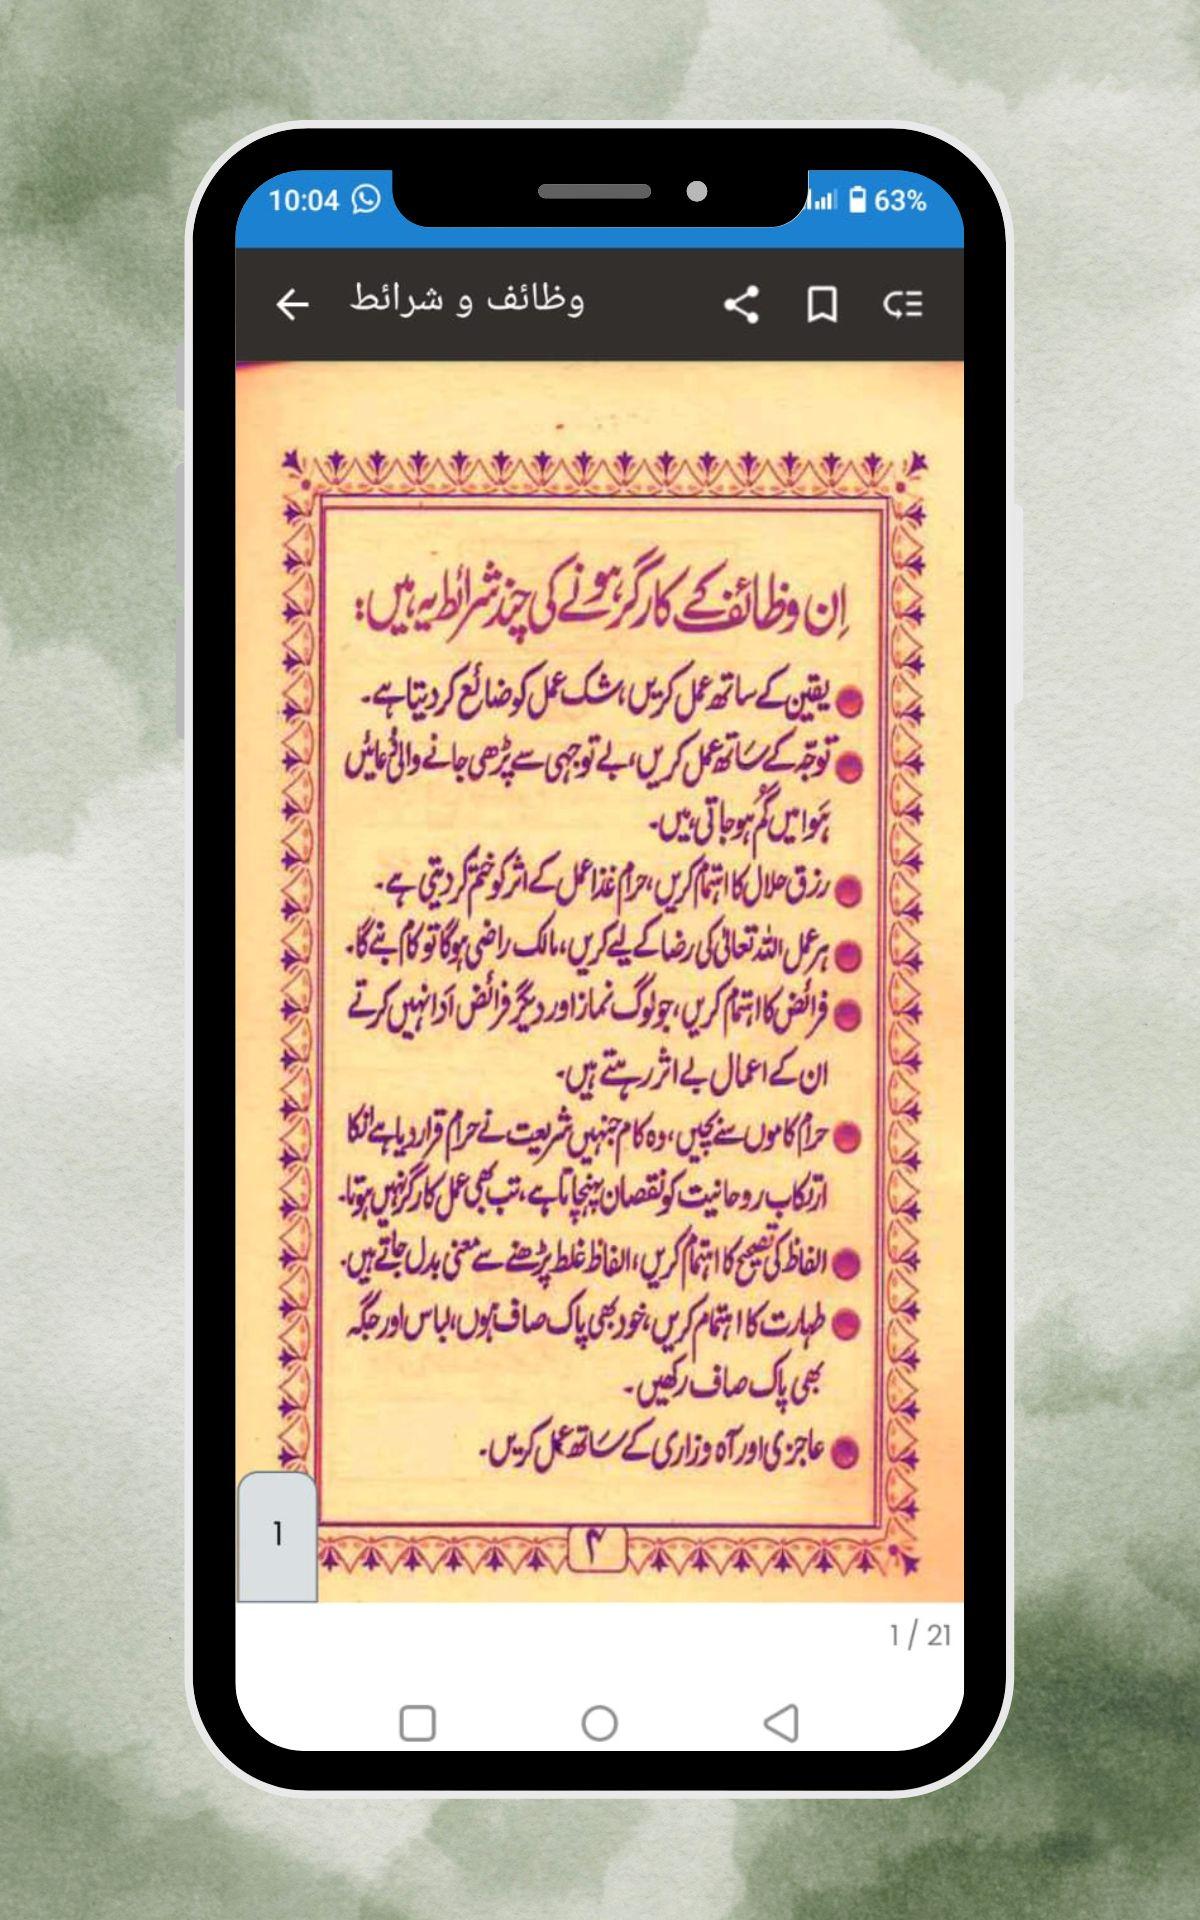 10:04
63%
وظائف و شرائط
اِن وظائف کے کارگر ہونے کی چند شرائط یہ ہیں:
یقین کے ساتھ عمل کریں، شک عمل کو ضائع کر دیتا ہے۔
توجّہ کے ساتھ عمل کریں، بے توجہی سے پڑھی جانے والی دُعائیں
ہَوا میں گُم ہو جاتی ہیں۔
رزق حلال کا اہتمام کریں، حرام غذا عمل کے اثر کو ختم کر دیتی ہے۔
ہر عمل اللہ تعالیٰ کی رضا کے لیے کریں، مالک راضی ہوگا تو کام بنے گا۔
فرائض کا اہتمام کریں، جو لوگ نماز اور دیگر فرائض اَدا نہیں کرتے
ان کے اعمال بے اثر رہتے ہیں۔
حرام کاموں سے بچیں، وہ کام جنہیں شریعت نے حرام قرار دیا ہے انکا
ارتکاب روحانیت کو نقصان پہنچاتا ہے، تب بھی عمل کارگر نہیں ہوتا۔
الفاظ کی تصحیح کا اہتمام کریں، الفاظ غلط پڑھنے سے معنی بدل جاتے ہیں۔
طہارت کا اہتمام کریں، خود بھی پاک صاف ہوں، لباس اور جگہ
بھی پاک صاف رکھیں۔
عاجزی اور آہ وزاری کے ساتھ عمل کریں۔
۴
1
1 / 21